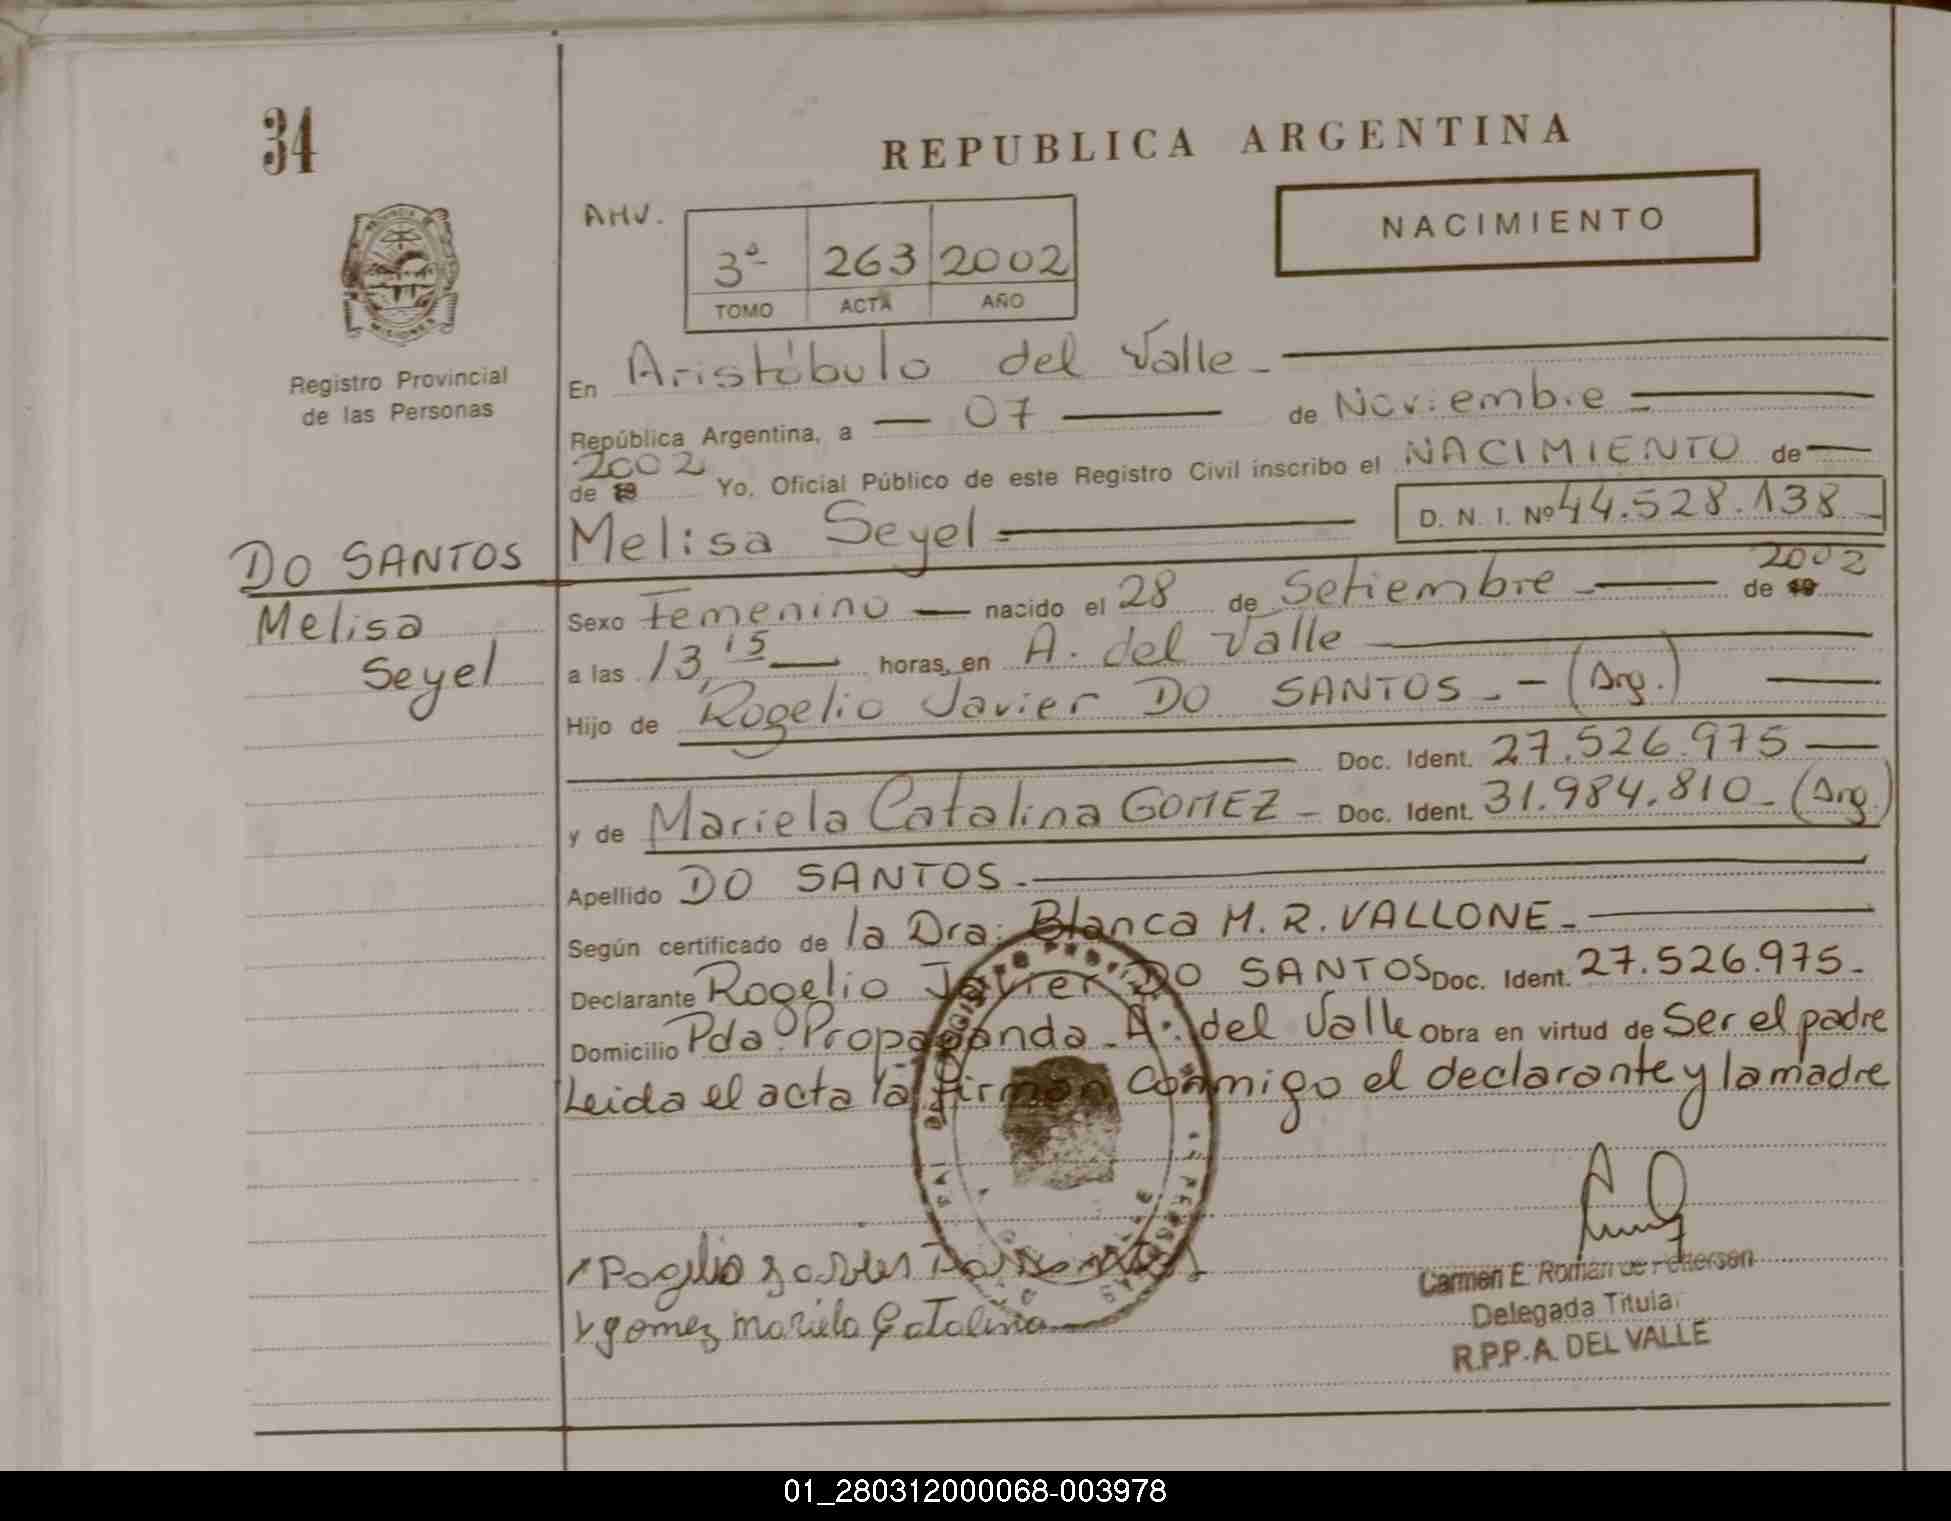 34
REPUBLICA ARGENTINA
NACIMIENTO
AHV.
3ª 263 2002
TOMO ACTA AÑO
PROVINCIA DE
MISIONES
Registro Provincial
de las Personas
En Aristóbulo del Valle.-
República Argentina, a — 07 — de Noviembre
2002
de 19 Yo, Oficial Público de este Registro Civil inscribo el NACIMIENTO de
D. N. I. Nº 44.528.138
DO SANTOS Melisa Seyel
2002
Melisa Sexo Femenino — nacido el 28 de Setiembre - de 19
Seyel a las 13,15 — horas, en A. del Valle
Hijo de Rogelio Javier DO SANTOS.- (Arg.)
Doc. Ident. 27.526.975
y de Mariela Catalina GOMEZ - Doc. Ident. 31.984.810.- (Arg.)
Apellido DO SANTOS.-
Según certificado de la Dra. Blanca M. R. VALLONE.-
Declarante Rogelio Javier DO SANTOS Doc. Ident. 27.526.975.-
Domicilio Pda. Propaganda. A. del Valle Obra en virtud de Ser el padre
Leida el acta la firman conmigo el declarante y la madre
Gomez Mariela Catalina
Carmen E. Román de Pettersen
Delegada Titular
R.P.P-A. DEL VALLE
01_280312000068-003978